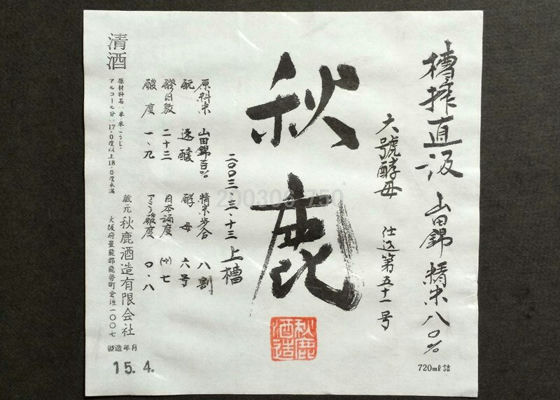 槽搾直汲 山田錦 精米八〇%
六號酵母 仕込第五十一号
秋鹿
秋鹿
酒造
二〇〇三、三、十三 上槽
原料米 山田錦 百% 精米歩合 八割
酛 速醸 酵母 六号
醪日数 二十三 日本酒度 (+)七
酸度 一、九 アミノ酸度 〇・八
清酒
原材料名・米・米こうじ
アルコール分・17.0度以上18.0度未満
蔵元 秋鹿酒造有限会社
大阪府豊能郡能勢町倉垣一〇〇七
製造年月
15. 4.
720ml 詰